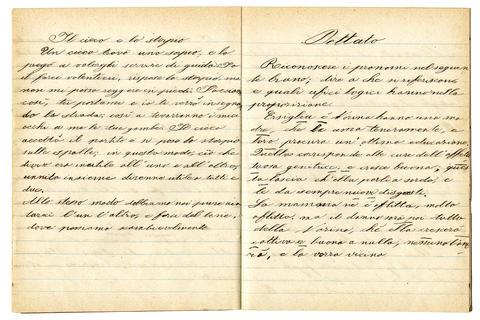 Il cieco e lo storpio
Un cieco trovò uno storpio, e lo
pregò a volergli servire di guida. Io
il farei volentieri, rispose lo storpio, ma
non mi posso reggere in piedi. Facciamo
così, tu portami ed io ti verrò insegnan
do la strada; così a te varranno i miei
occhi a me le tue gambe. Il cieco
accettò il partito e si pose lo storpio
sulle spalle; in questo modo, ciò che
diviso era inutile all'uno e all'altro,
unito insieme divenne utile a tutti e
due.
Allo stesso modo dobbiamo noi pure aiu
tarci l'un l'altro, e fare del bene,
dove possiamo scambievolmente
Dettato
Riconoscere i pronomi nel seguen
te brano; dire a che si referiscono
e quale uffici logici hanno nella
proposizione.
Ersiglia e Norina hanno una ma
dre, che le ama teneramente, e
loro procura un'ottima educazione.
Quella corrisponde alle cure dell'affet
tuosa genitrice, e cresce buona; questa
la lascia ch'ella parli a modo; e
le dà sempre nuovi disgusti.
La mamma ne è afflitta, molto
afflitta; ma il danno
della Norina, che
cattiva e buona a nulla, nessuno l'am
e la vorrà vicino